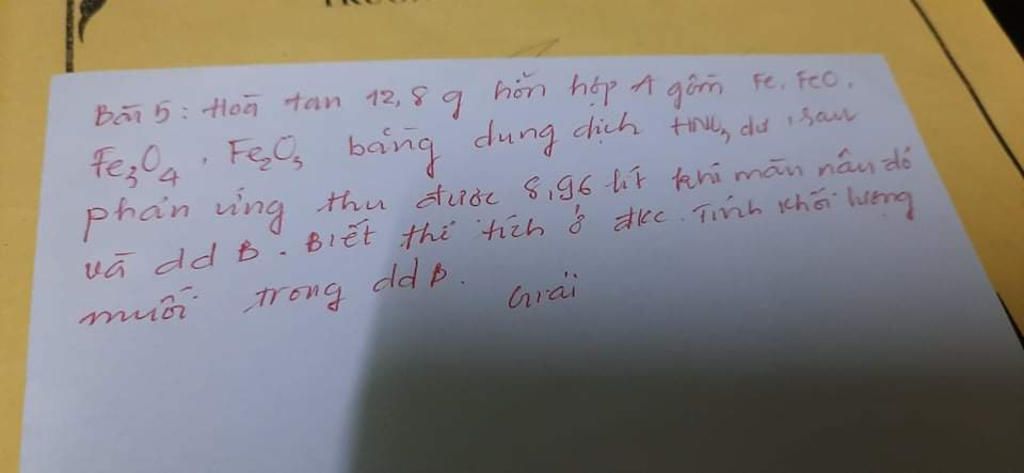 Bài 5: Hoà tan 12,8 g hỗn hợp A gồm Fe, FeO,
Fe3O4, Fe2O3 bằng dung dịch HNO3 dư, sau
phản ứng thu được 8,96 lít khí màu nâu đỏ
và dd B. Biết thể tích ở đkc. Tính khối lượng
muối trong dd B.
Giải